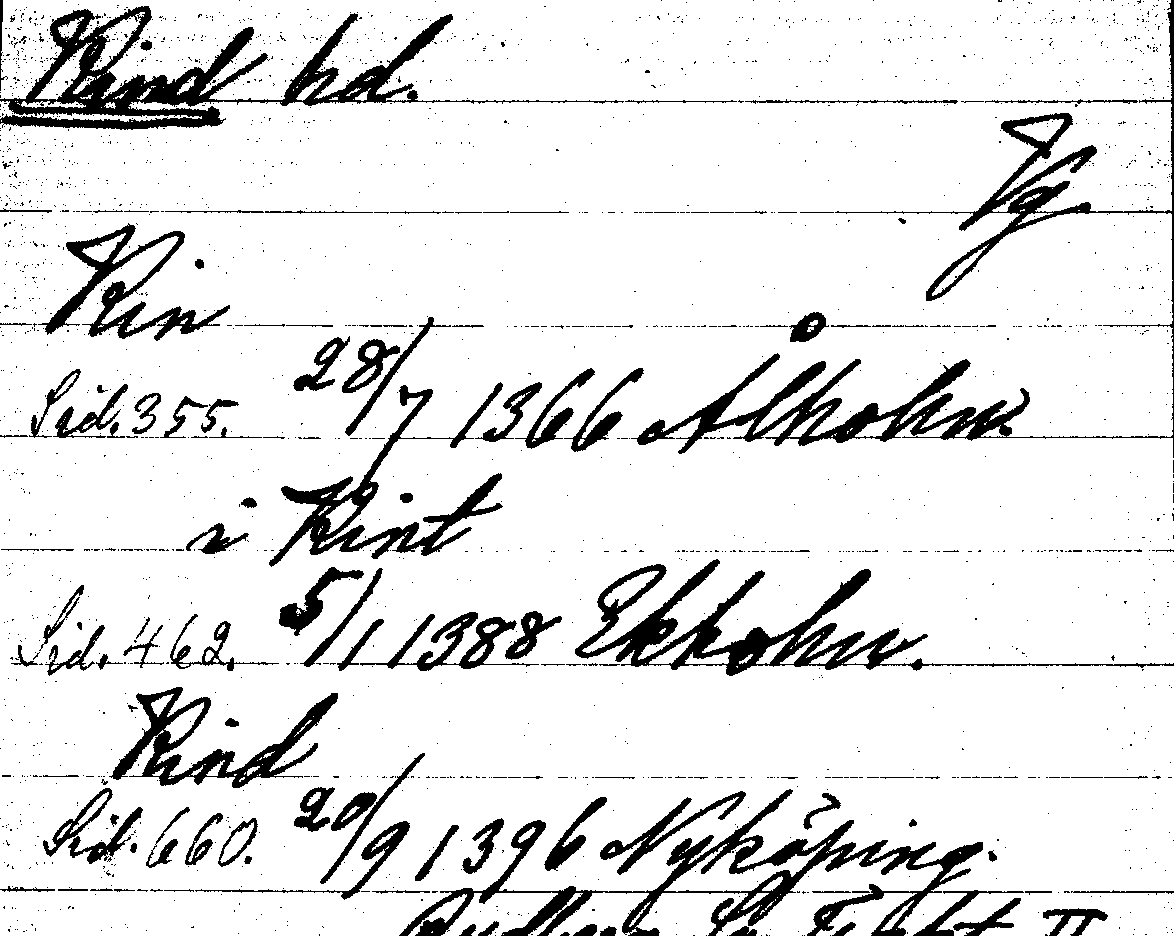 Kind hd.
Vg.
Kin
Sid. 355. 28/7 1366 Ålholm.
i Kint
Sid. 462. 5/1 1388 Ekholm.
Kind
Sid. 660. 20/9 1396 Nyköping.